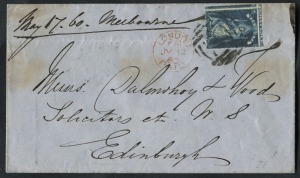 May 17. 60. Melbourne
Messrs. Dalmahoy & Wood
Solicitors etc. W S
Edinburgh